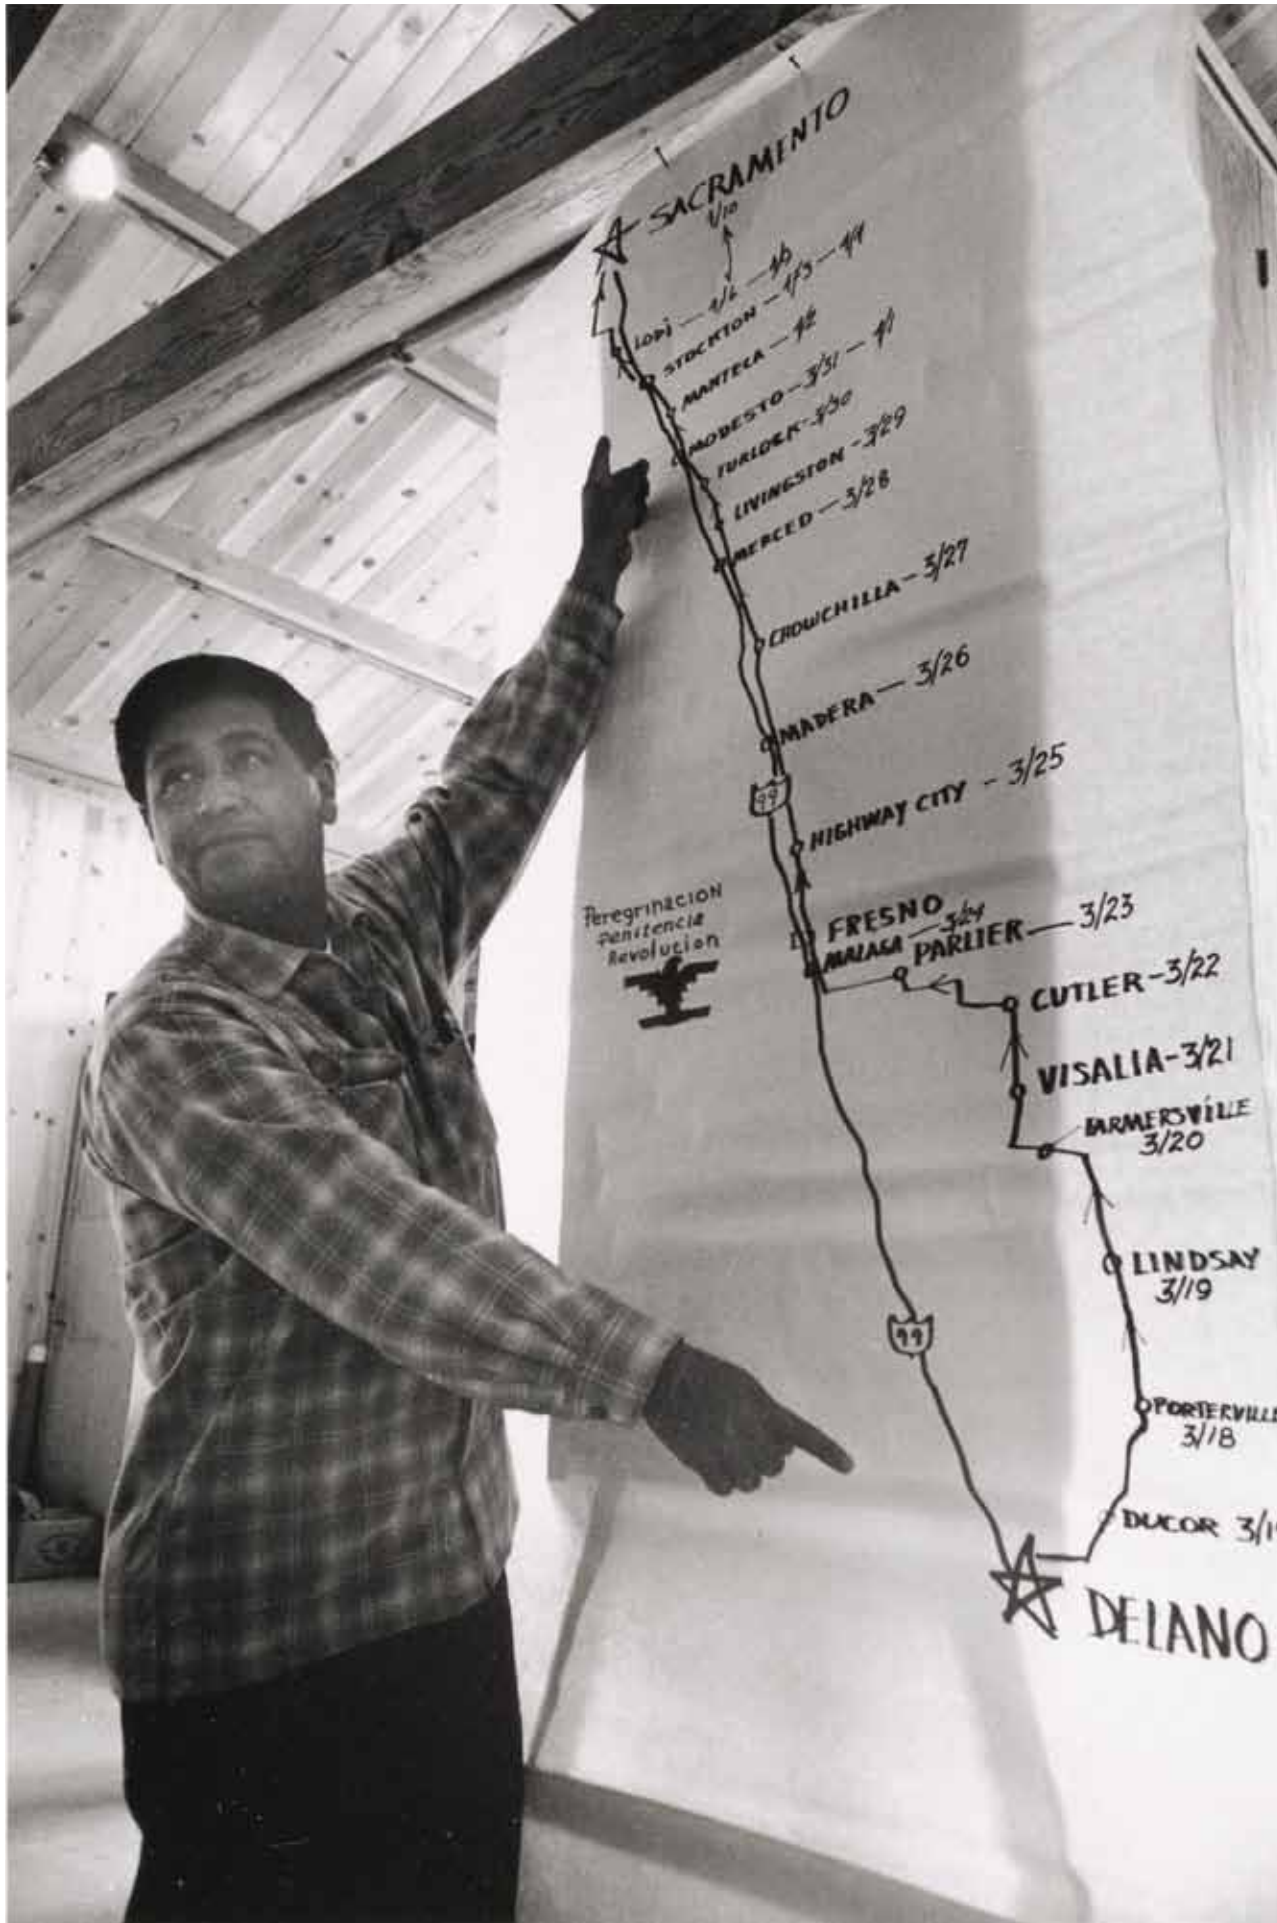 SACRAMENTO
4/10
LODI — 4/6 — 4/5
STOCKTON — 4/3 — 4/4
MANTECA — 4/2
MODESTO — 3/31 — 4/1
TURLOCK - 3/30
LIVINGSTON - 3/29
MERCED — 3/28
CHOWCHILLA — 3/27
MADERA — 3/26
99
HIGHWAY CITY - 3/25
Peregrinacion
Penitencia
Revolucion
FRESNO
MALAGA — 3/24
PARLIER — 3/23
CUTLER - 3/22
VISALIA - 3/21
FARMERSVILLE
3/20
LINDSAY
3/19
99
PORTERVILLE
3/18
DUCOR
DELANO